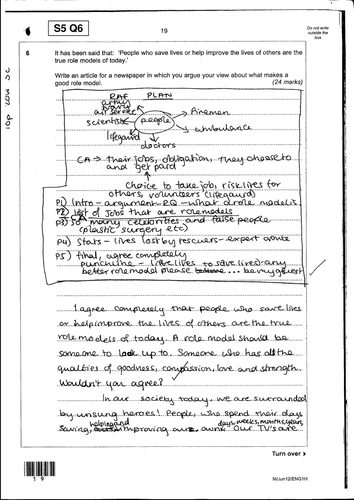 S5 Q6
19
Do not write
outside the
box
6
It has been said that: 'People who save lives or help improve the lives of others are the
true role models of today.'
Write an article for a newspaper in which you argue your view about what makes a
good role model.
(24 marks)
PLAN
RAF
army
air service
scientists
people
Firemen
ambulance
lifegaurd
doctors
CA → their jobs, obligation, they choose to
and get paid
Choice to take job, risk lives for
others, volunteers (lifegaurd)
P1) Intro - argument - RQ - what a role model is
P2) list of Jobs that are rolemodels
P3) so many celebrities and false people
(plastic surgery etc)
P4) Stats - lives lost by rescuers - expert quote
P5) final, agree completely
punchline - lives to save lives - any
better rolemodel please ... be my guest
I agree completely that people who save lives
or help improve the lives of others are the true
role models of today. A role model should be
someone to look up to. Someone who has all the
qualities of goodness, compassion, love and strength.
Wouldn't you agree?
In our society today, we are surrounded
by unsung heroes! People, who spend their days
helping and
days, weeks, months, years,
saving, improving our own. Our TV's are
Turn over
19
M/Jun12/ENG1H